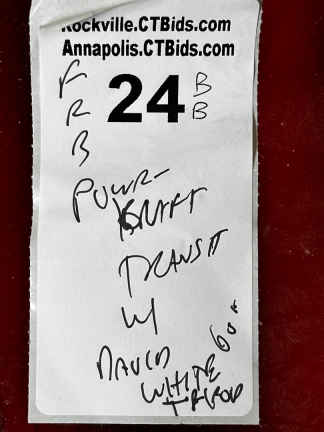 Rockville.CTBids.com
Annapolis.CTBids.com
F
R
B
24
B
B
POWR-
KRAFT
TRANSIT
W/
DAVID
WHITE 60"
TRIPOD